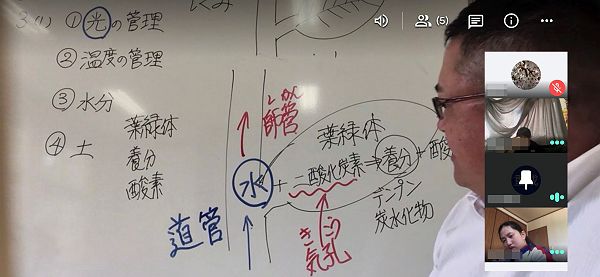 3(1) ①光の管理
②温度の管理
③水分
④土
葉緑体
養分
酸素
しかん
師管
道管
葉緑体
水+二酸化炭素⇒養分+酸
デンプン
炭水化物
きこう
気孔
(5)